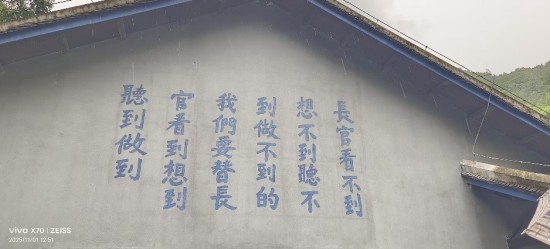 長官看不到
想不到聽不
到做不到的
我們要替長
官看到想到
聽到做到
vivo X70 | ZEISS
2025/11/01 10:51